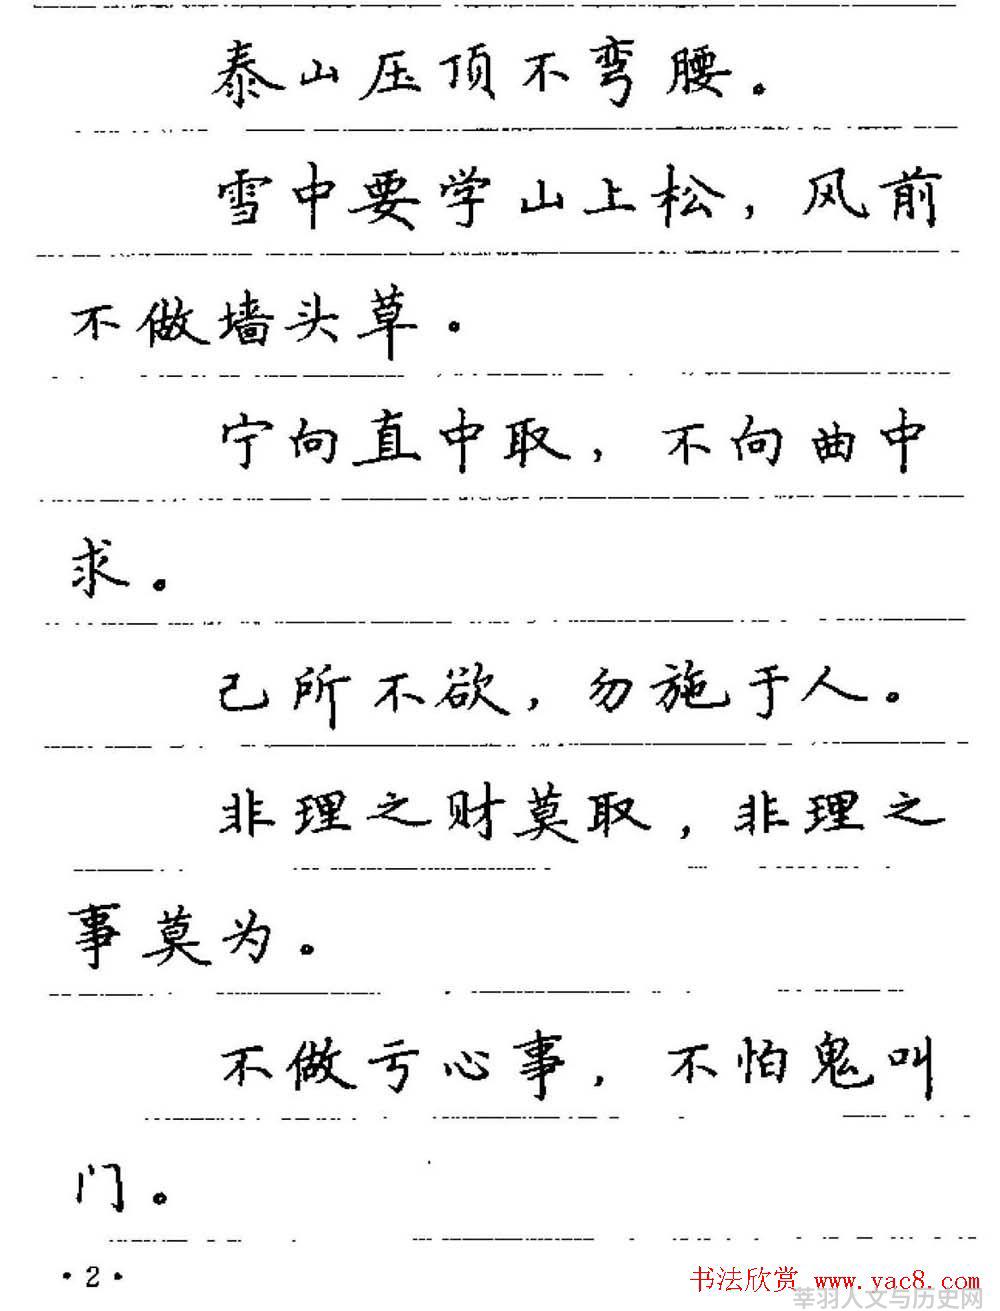 泰山压顶不弯腰。
雪中要学山上松，风前
不做墙头草。
宁向直中取，不向曲中
求。
己所不欲，勿施于人。
非理之财莫取，非理之
事莫为。
不做亏心事，不怕鬼叫
门。
·2·
书法欣赏 www.yac8.com
莘羽人文与历史网